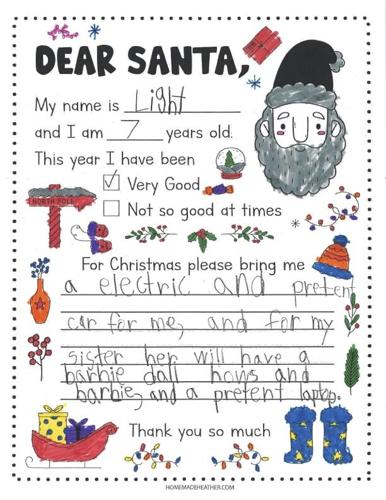 DEAR SANTA,
My name is Light
and I am 7 years old.
This year I have been
✓ Very Good
NORTH POLE
Not so good at times
For Christmas please bring me
a electric and pretent
car for me, and for my
sister her will have a
barbie dall hows and
barbie, and a pretent laptop.
Thank you so much
HOMEMADEHEATHER.COM